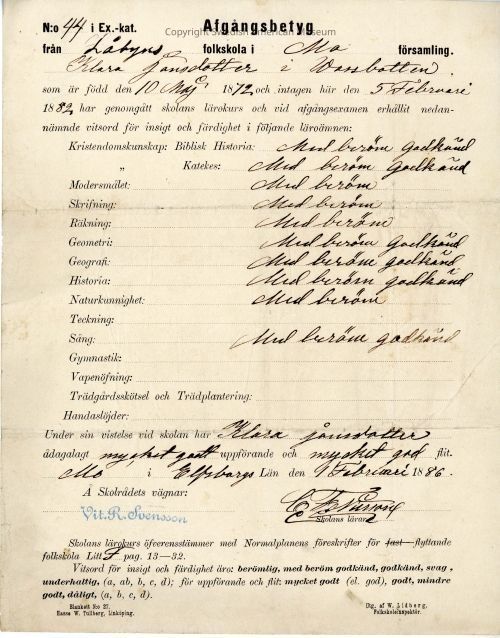 Copyright Swedish American Museum
N:o 44 i Ex.-kat.
Afgångsbetyg
från Låbyns folkskola i Mo församling.
Klara Jansdotter i Wassbotten
som är född den 10 Maj 1872, och intagen här den 5 Februari
1882, har genomgått skolans lärokurs och vid afgångsexamen erhållit nedan-
nämnde vitsord för insigt och färdighet i följande läroämnen:
Kristendomskunskap: Biblisk Historia: Med beröm Godkänd
„ Katekes: Med beröm Godkänd
Modersmålet: Med beröm
Skrifning: Med beröm
Räkning: Med beröm
Geometri: Med beröm Godkänd
Geografi: Med beröm godkänd
Historia: Med beröm godkänd
Naturkunnighet: Med beröm
Teckning:
Sång: Med beröm godkänd
Gymnastik:
Vapenöfning:
Trädgårdsskötsel och Trädplantering:
Handaslöjder:
Under sin vistelse vid skolan har Klara Jansdotter
ådagalagt mycket godt uppförande och mycket god flit.
Mo i Elfsborgs Län den 9 Februari 1886.
Å Skolrådets vägnar:
Vit. R. Svensson
Skolans lärare
Skolans lärokurs öfverensstämmer med Normalplanens föreskrifter för fast flyttande
folkskola Litt. F pag. 13—32.
Vitsord för insigt och färdighet äro: berömlig, med beröm godkänd, godkänd, svag,
underhaltig, (a, ab, b, c, d); för uppförande och flit: mycket godt (el. god), godt, mindre
godt, dåligt, (a, b, c, d).
Blankett No 27.
Hanns W. Tullberg, Linköping.
Dig. af W. Lidberg.
Folkskoleinspektör.